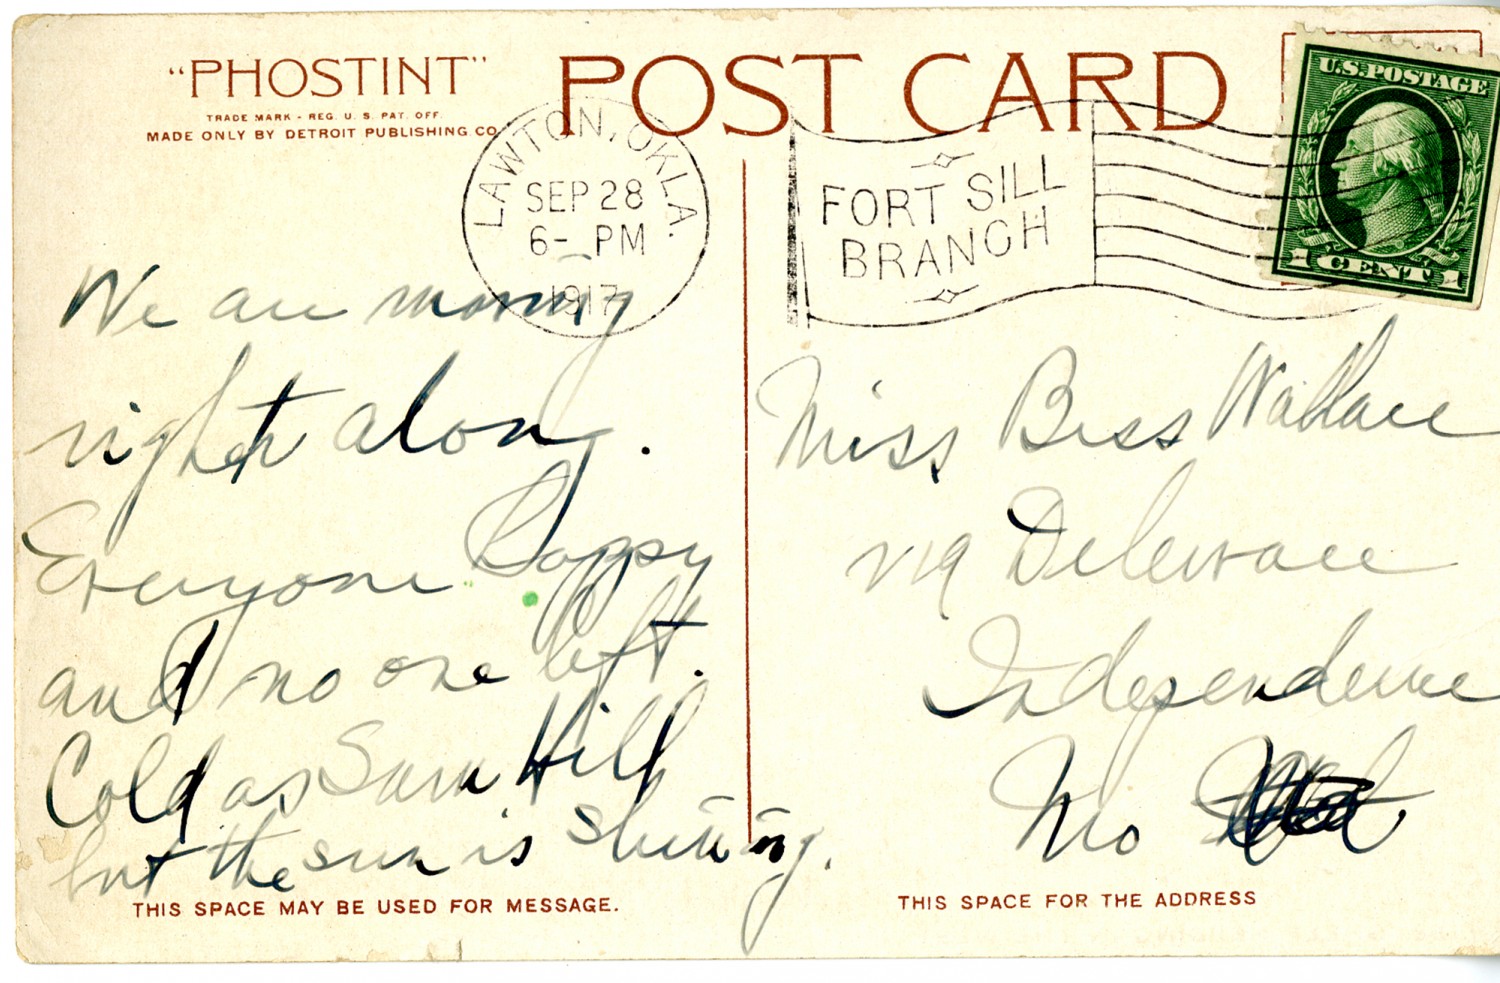 "PHOSTINT"
TRADE MARK - REG. U. S. PAT. OFF.
MADE ONLY BY DETROIT PUBLISHING CO
POST CARD
U.S. POSTAGE
1 CENT 1
LAWTON, OKLA.
SEP 28
6- PM
1917
FORT SILL
BRANCH
We are moving
right along.
Everyone happy
and no one left.
Cold as Sam Hill
but the sun is shining.
Miss Bess Wallace
219 Delaware
Independence
Mo
THIS SPACE MAY BE USED FOR MESSAGE.
THIS SPACE FOR THE ADDRESS